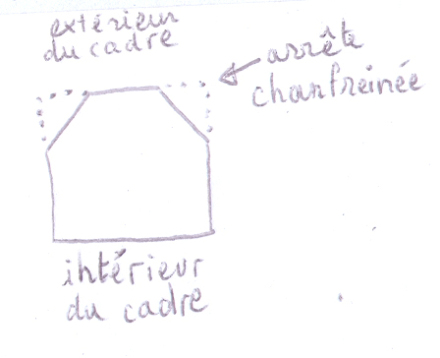 extérieur
du cadre
arrête
chanfreinée
intérieur
du cadre